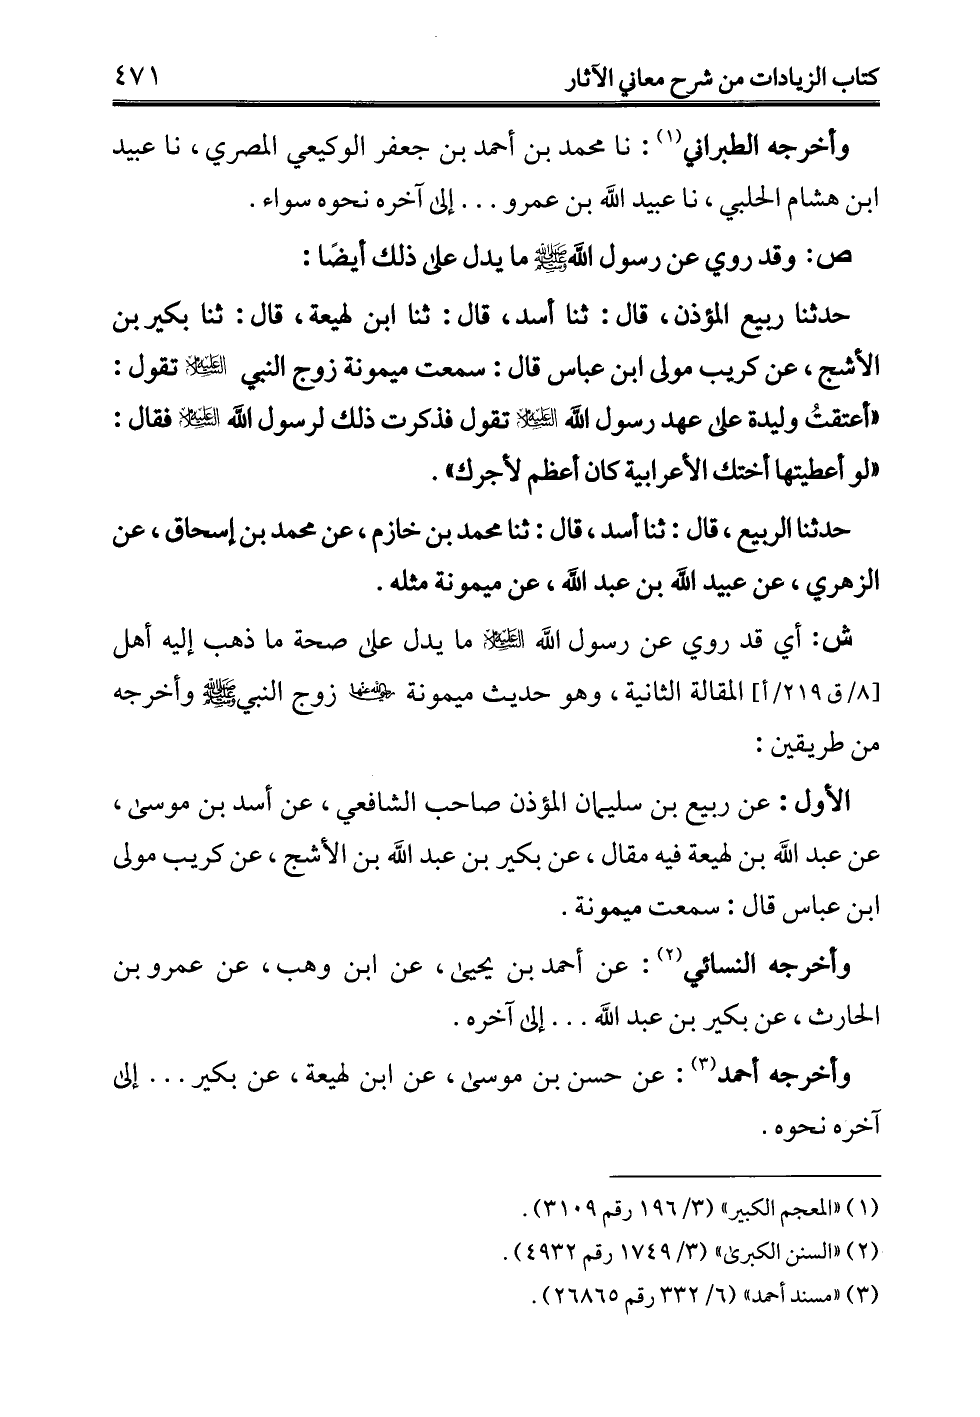 كتاب الزيادات من شرح معاني الآثار ٤٧١
وأخرجه الطبراني(١) : نا محمد بن أحمد بن جعفر الوكيعي المصري ، نا عبيد
ابن هشام الحلبي ، نا عبيد الله بن عمرو ... إلى آخره نحوه سواء .
ص: وقد روي عن رسول الله ﷺ ما يدل على ذلك أيضًا :
حدثنا ربيع المؤذن ، قال : ثنا أسد ، قال : ثنا ابن لهيعة ، قال : ثنا بكير بن
الأشج ، عن كريب مولى ابن عباس قال : سمعت ميمونة زوج النبي عليه السلام تقول :
«أعتقتُ وليدة على عهد رسول الله عليه السلام تقول فذكرت ذلك لرسول الله عليه السلام فقال :
«لو أعطيتها أختك الأعرابية كان أعظم لأجرك» .
حدثنا الربيع ، قال : ثنا أسد ، قال : ثنا محمد بن خازم ، عن محمد بن إسحاق ، عن
الزهري ، عن عبيد الله بن عبد الله ، عن ميمونة مثله .
ش: أي قد روي عن رسول الله عليه السلام ما يدل على صحة ما ذهب إليه أهل
[٨/ ق ٢١٩/ أ] المقالة الثانية ، وهو حديث ميمونة رضي الله عنها زوج النبي ﷺ وأخرجه
من طريقين :
الأول : عن ربيع بن سليمان المؤذن صاحب الشافعي ، عن أسد بن موسى ،
عن عبد الله بن لهيعة فيه مقال ، عن بكير بن عبد الله بن الأشج ، عن كريب مولى
ابن عباس قال : سمعت ميمونة .
وأخرجه النسائي(٢) : عن أحمد بن يحيى ، عن ابن وهب ، عن عمرو بن
الحارث ، عن بكير بن عبد الله ... إلى آخره .
وأخرجه أحمد(٣) : عن حسن بن موسى ، عن ابن لهيعة ، عن بكير ... إلى
آخره نحوه .
(١) «المعجم الكبير» (٣/ ١٩٦ رقم ٣١٠٩) .
(٢) «السنن الكبرى» (٣/ ١٧٤٩ رقم ٤٩٣٢) .
(٣) «مسند أحمد» (٦/ ٣٣٢ رقم ٢٦٨٦٥) .